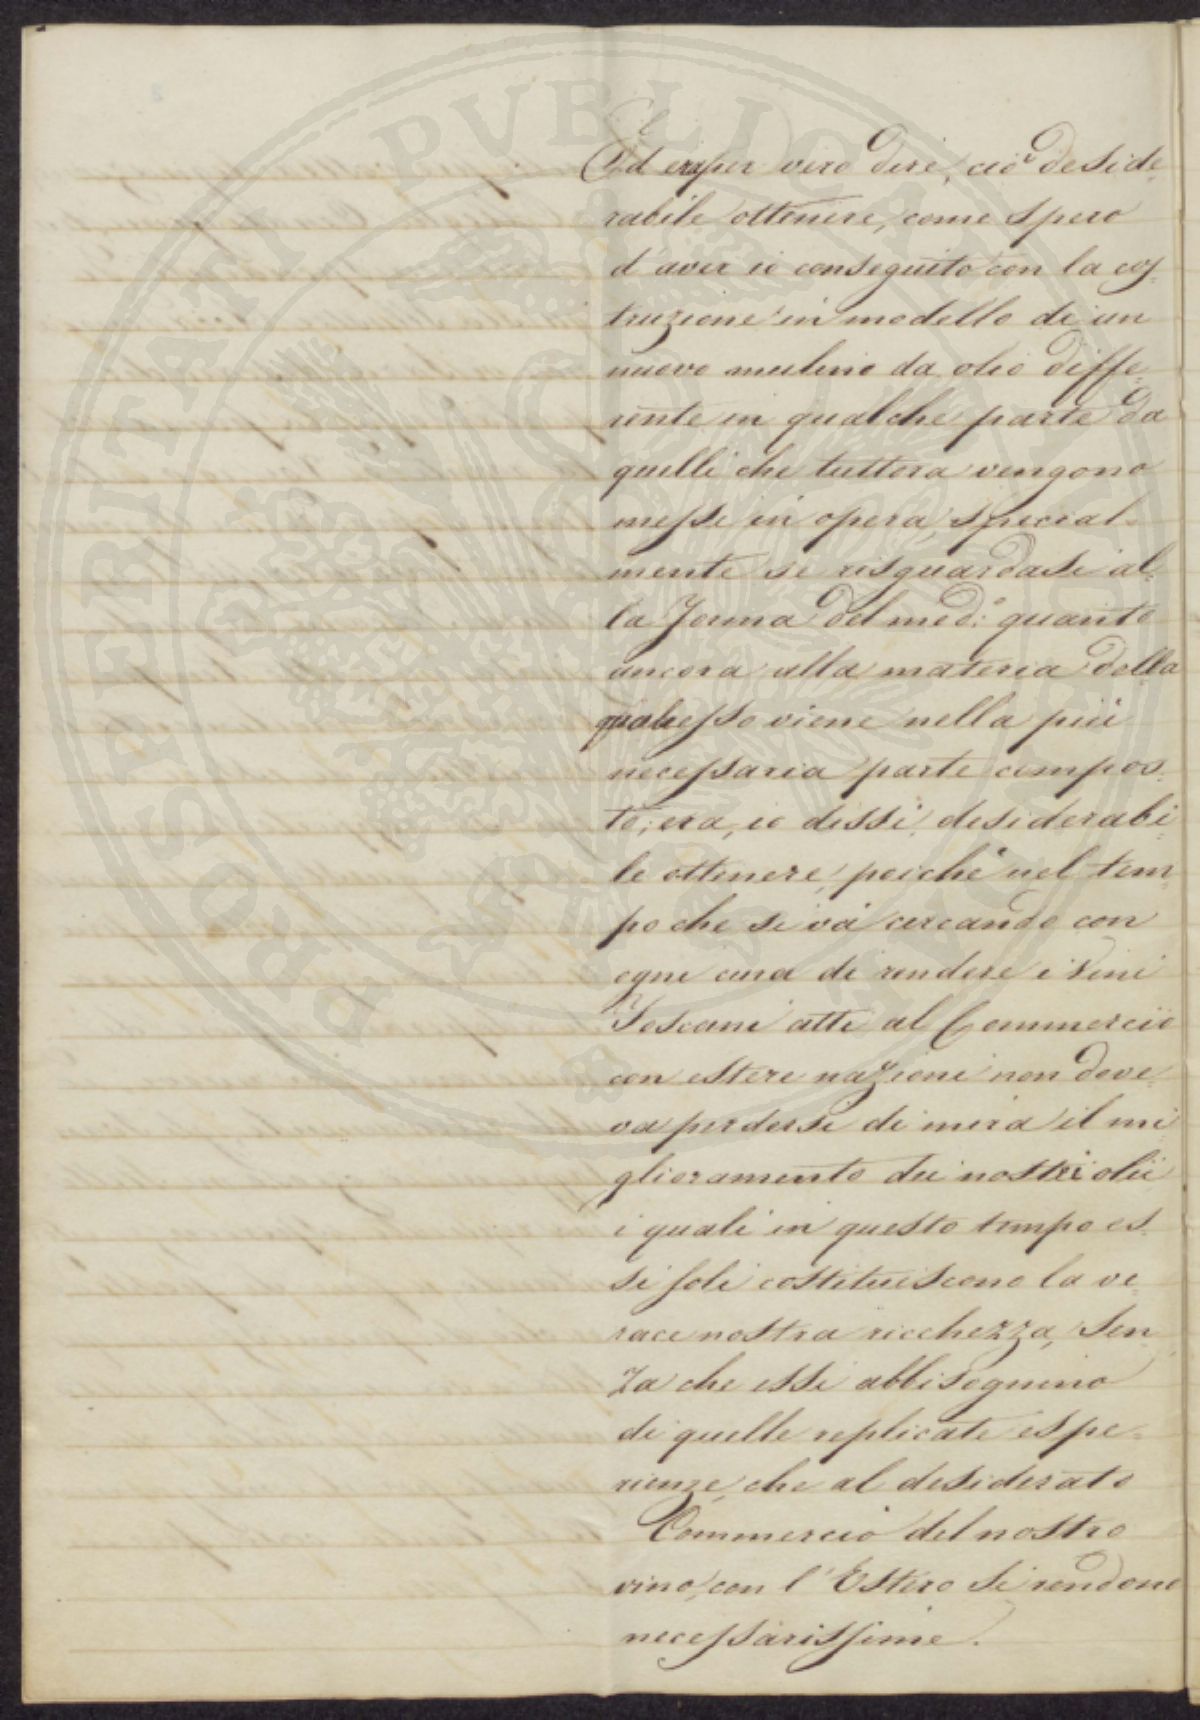 PROSPERITATI PVBLICAE AVGENDAE
Ed era per vero dire, ciò deside-
rabile ottenere, come spero
d'aver io conseguito con la cos-
truzione in modello di un
nuovo mulino da olio diffe-
rente in qualche parte da
quelli che tuttora vengono
messi in opera, special-
mente se risguardasi al-
la forma del med:o quanto
ancora alla materia della
quale esso viene nella più
necessaria parte compos-
to; era, io dissi, desiderabi-
le ottenere, poichè nel tem-
po che si và cercando con
ogni cura di rendere i vini
Toscani atti al Commercio
con estere nazioni non dove-
va perdersi di mira il mi-
glioramento dei nostri olii
i quali in questo tempo es-
si soli costituiscono la ve-
race nostra ricchezza, sen-
za che essi abbisognino
di quelle replicate espe-
rienze, che al desiderato
Commercio del nostro
vino, con l'Estero si rendono
necessarissime.